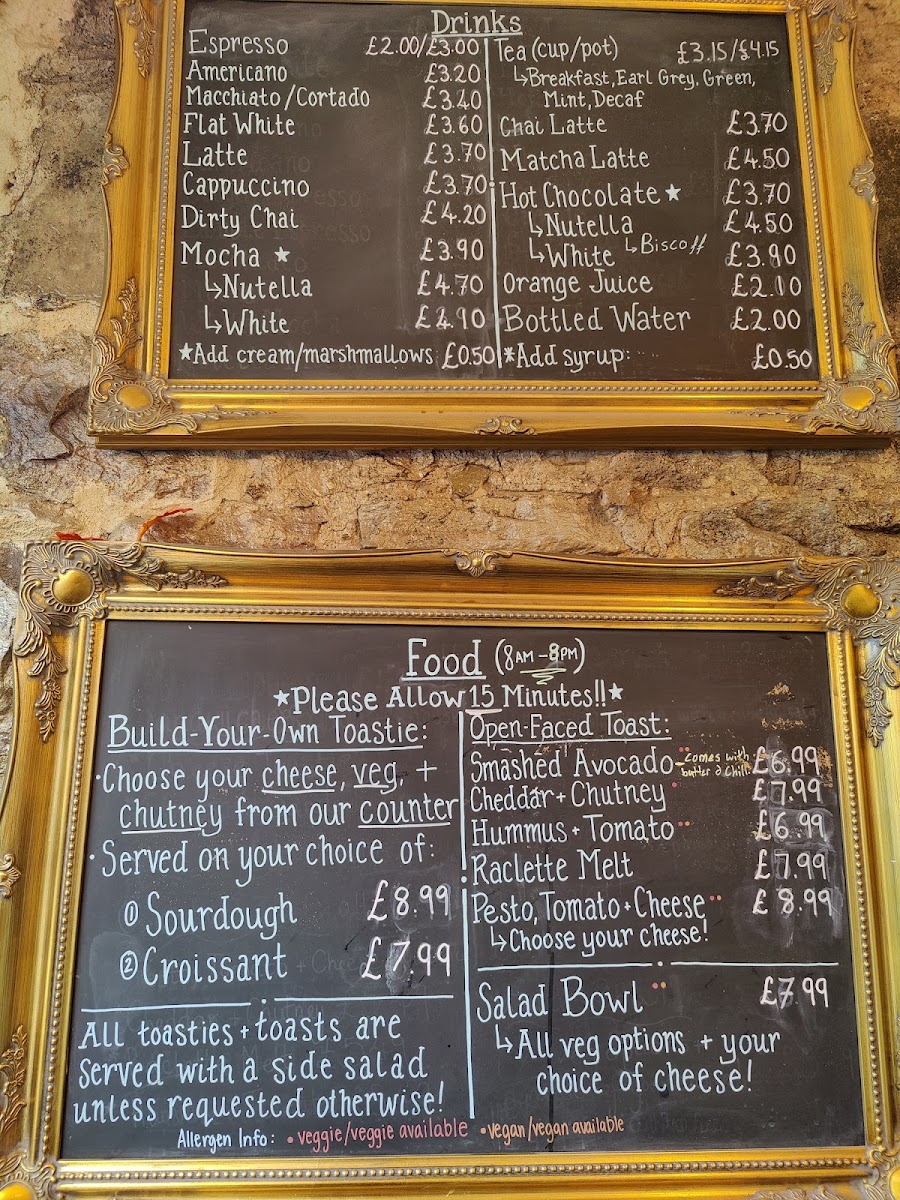 Drinks
Espresso £2.00/£3.00
Americano £3.20
Macchiato/Cortado £3.40
Flat White £3.60
Latte £3.70
Cappuccino £3.70
Dirty Chai £4.20
Mocha ★ £3.90
↳Nutella £4.70
↳White
★Add cream/marshmallows £0.50
Tea (cup/pot) £3.15/£4.15
↳Breakfast, Earl Grey, Green,
Mint, Decaf
Chai Latte £3.70
Matcha Latte £4.50
Hot Chocolate ★ £3.70
↳Nutella £4.50
↳White ↳Biscoff
Orange Juice
Bottled Water £2.00
*Add syrup: £0.50
Food (8AM-8PM)
★Please Allow 15 Minutes!!★
Build-Your-Own Toastie:
·Choose your cheese, veg, +
chutney from our counter
·Served on your choice of:
① Sourdough £8.99
② Croissant £7.99
All toasties + toasts are
served with a side salad
unless requested otherwise!
Open-Faced Toast:
Smashed Avocado -comes with butter & chilli £6.99
Cheddar + Chutney £7.99
Hummus + Tomato £6.99
Raclette Melt £7.99
Pesto, Tomato + Cheese £8.99
↳Choose your cheese!
Salad Bowl £7.99
↳All veg options + your
choice of cheese!
Allergen Info: •veggie/veggie available •vegan/vegan available